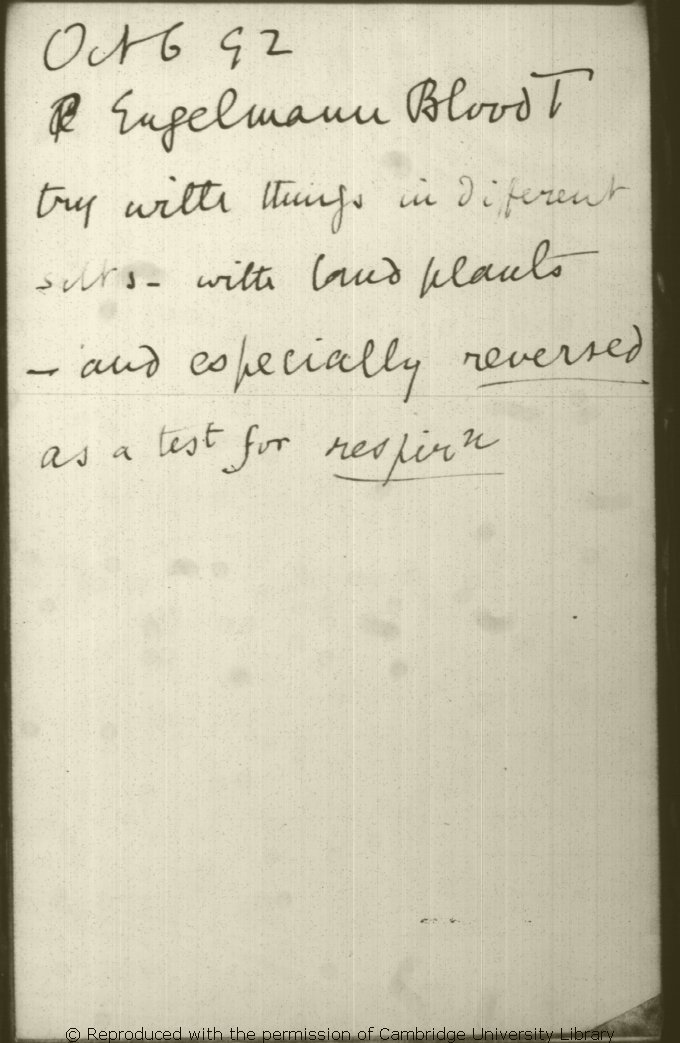 Oct 6 92
Engelmann Blood T
try with things in different
salts - with land plants
- and especially reversed
as a test for respirn
© Reproduced with the permission of Cambridge University Library